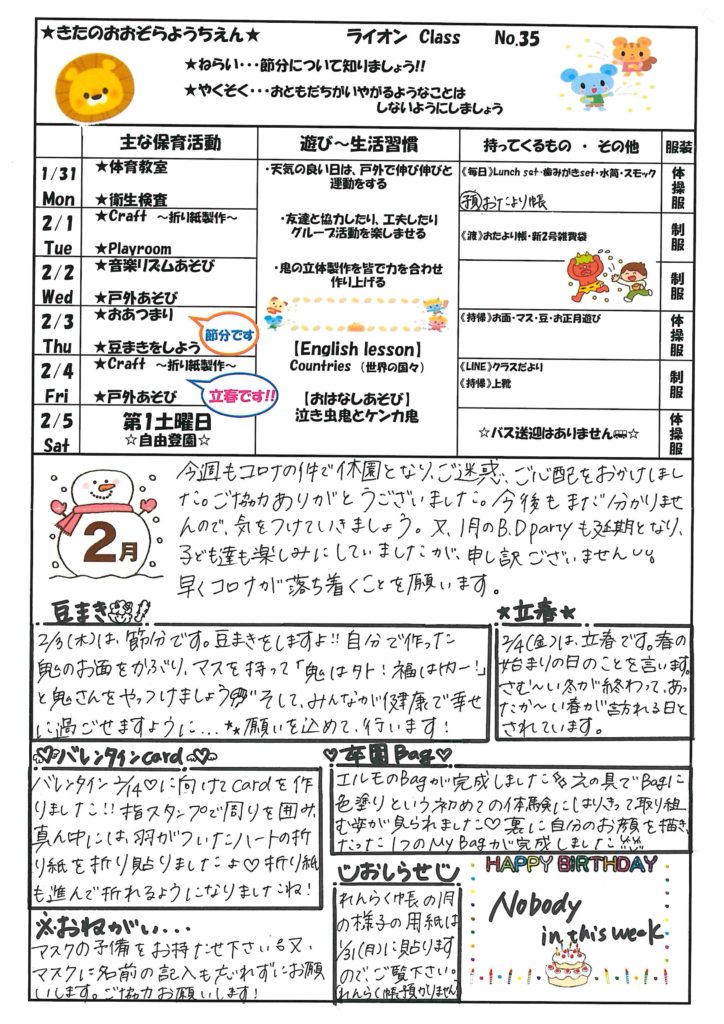 ★きたのおおぞらようちえん★ ライオン Class No.35
★ねらい・・・節分について知りましょう!!
★やくそく・・・おともだちがいやがるようなことは
しないようにしましょう
主な保育活動 遊び～生活習慣 持ってくるもの ・ その他 服装
1/31
Mon
★体育教室
★衛生検査
・天気の良い日は、戸外で伸び伸びと
運動をする
《毎日》Lunch set・歯みがきset・水筒・スモック
預 おたより帳
体操服
2/1
Tue
★Craft ～折り紙製作～
★Playroom
・友達と協力したり、工夫したり
グループ活動を楽しませる
《渡》おたより帳・新2号雑費袋
制服
2/2
Wed
★音楽リズムあそび
★戸外あそび
・鬼の立体製作を皆で力を合わせ
作り上げる
制服
2/3
Thu
★おあつまり
★豆まきをしよう
節分です
《持帰》お面・マス・豆・お正月遊び
体操服
2/4
Fri
★Craft ～折り紙製作～
★戸外あそび
立春です!!
【English lesson】
Countries （世界の国々）
《LINE》クラスだより
《持帰》上靴
制服
2/5
Sat
第1土曜日
☆自由登園☆
【おはなしあそび】
泣き虫鬼とケンカ鬼
☆バス送迎はありません☆
体操服
2月
今週もコロナの件で休園となり、ご迷惑、ご心配をおかけしまし
た。ご協力ありがとうございました。今後もまだ分かりませ
んので、気をつけていきましょう。又、1月のB.D partyも延期となり、
子ども達も楽しみにしていましたが、申し訳ございません
早くコロナが落ち着くことを願います。
豆まき
2/3(木)は、節分です。豆まきをしますよ!! 自分で作った
鬼のお面をかぶり、マスを持って「鬼は外!福は内ー!」
と鬼さんをやっつけましょう そして、みんなが健康で幸せ
に過ごせますように...★★願いを込めて、行います!
★立春★
2/4(金)は、立春です。春の
始まりの日のことを言います。
さむ～い冬が終わって、あっ
たか～い春が訪れる日と
されています。
バレンタインcard
バレンタイン2/14♡に向けてcardを作
りました!! 指スタンプで周りを囲み、
真ん中には、羽がついたハートの折
り紙を折り貼りましたよ♡折り紙
も進んで折れるようになりましたね!
♡卒園Bag♡
エルモのBagが完成しました 絵の具でBagに
色塗りという初めての体験にはりきって取り組
む姿が見られました♡裏に自分のお顔を描き、
たった1つのMy Bagが完成しました
おしらせ
れんらく帳の1月
の様子の用紙は
1/31(月)に貼ります
ので、ご覧下さい。
れんらく帳預かりません
HAPPY BIRTHDAY
Nobody
in this week
※おねがい...
マスクの予備をお持たせ下さい。又、
マスクに名前の記入も忘れずにお願
いします。ご協力お願いします!